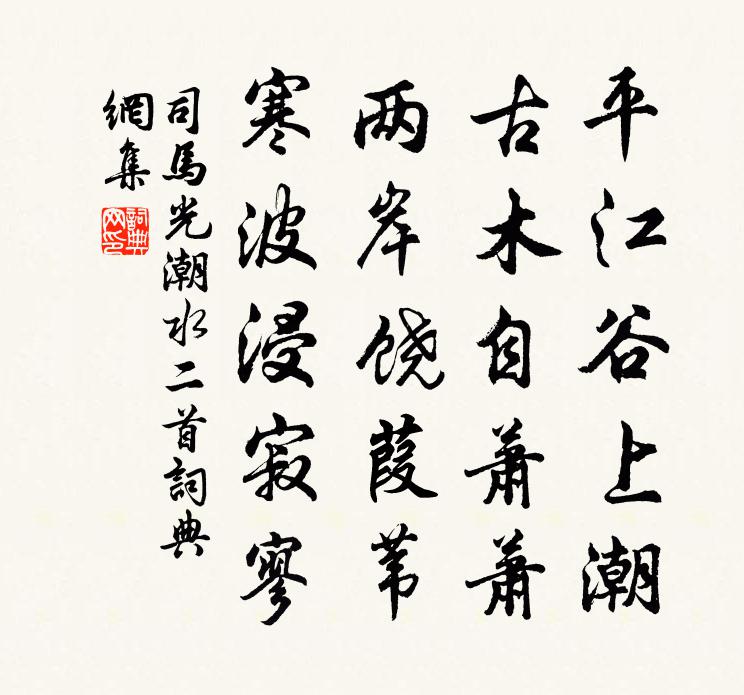 平江谷上潮
古木自萧萧
两岸饶葭苇
寒波浸寂寥
司馬光潮水二首詞典
網集
詞典
网印